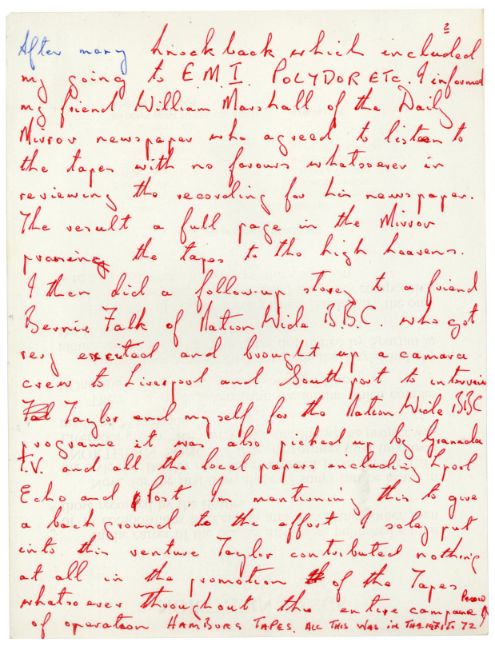 2
After many knock back which included
my going to E.M.I. POLYDOR ETC. I informed
my friend William Marshall of the Daily
Mirror newspaper who agreed to listen to
the tapes with no favours whatsoever in
reviewing the recording for his newspaper.
The result a full page in the Mirror
the tapes to the high heavens.
I then did a follow-up storey to a friend
Bernie Falk of Nation Wide B.B.C. who got
very excited and brought up a camara
crew to Liverpool and Southport to interview
Taylor and myself for the Nation Wide BBC
programe it was also picked up by Granada
T.V. and all the local papers including Lpool
Echo and Post. Im mentioning this to give
a back ground to the effort I soley put
into this venture Taylor contributed nothing
at all in the promotion of the Tapes
whatsoever throughout the entire
of operation HAMBURG TAPES. ALL THIS WAS IN THE